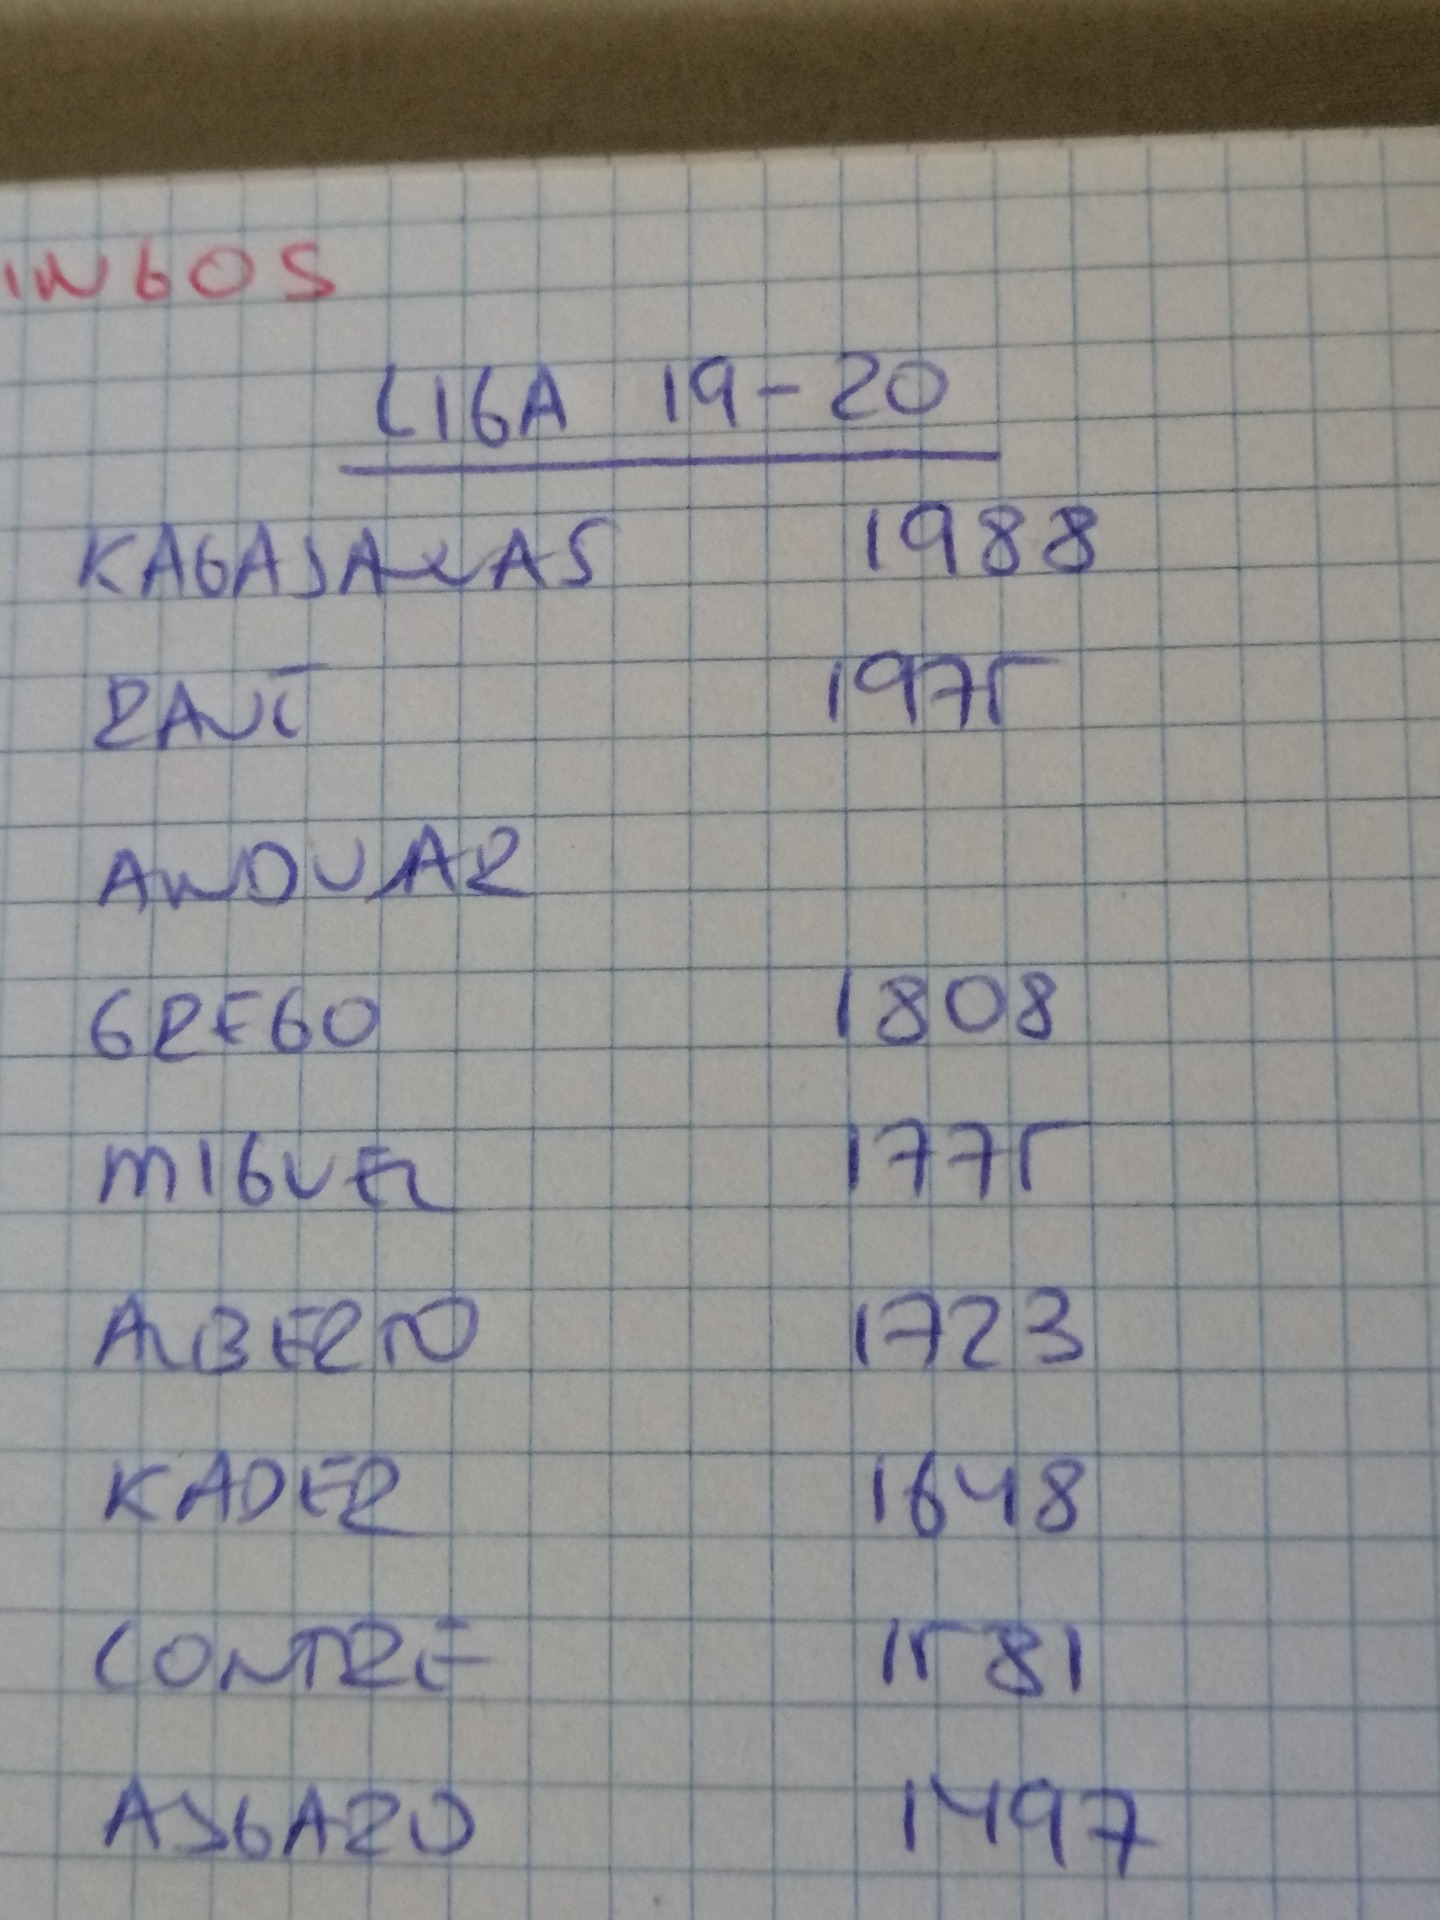 INGOS
LIGA 19-20
KAGAJALAS 1988
RAUL 1975
ANOUAR
GREGO 1808
MIGUEL 1775
ALBERTO 1723
KADER 1648
CONTRE 1581
1497